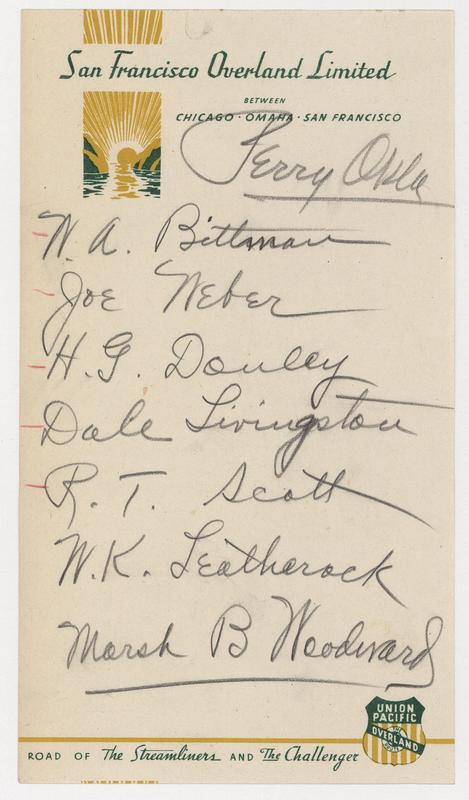 San Francisco Overland Limited
BETWEEN
CHICAGO · OMAHA · SAN FRANCISCO
Perry Okla
W. A. Bittman
Joe Weber
H. G. Donley
Dale Livingston
R. T. Scott
W. K. Leatherock
Marsh B Woodward
UNION
PACIFIC
THE
OVERLAND
ROUTE
ROAD OF The Streamliners AND The Challenger